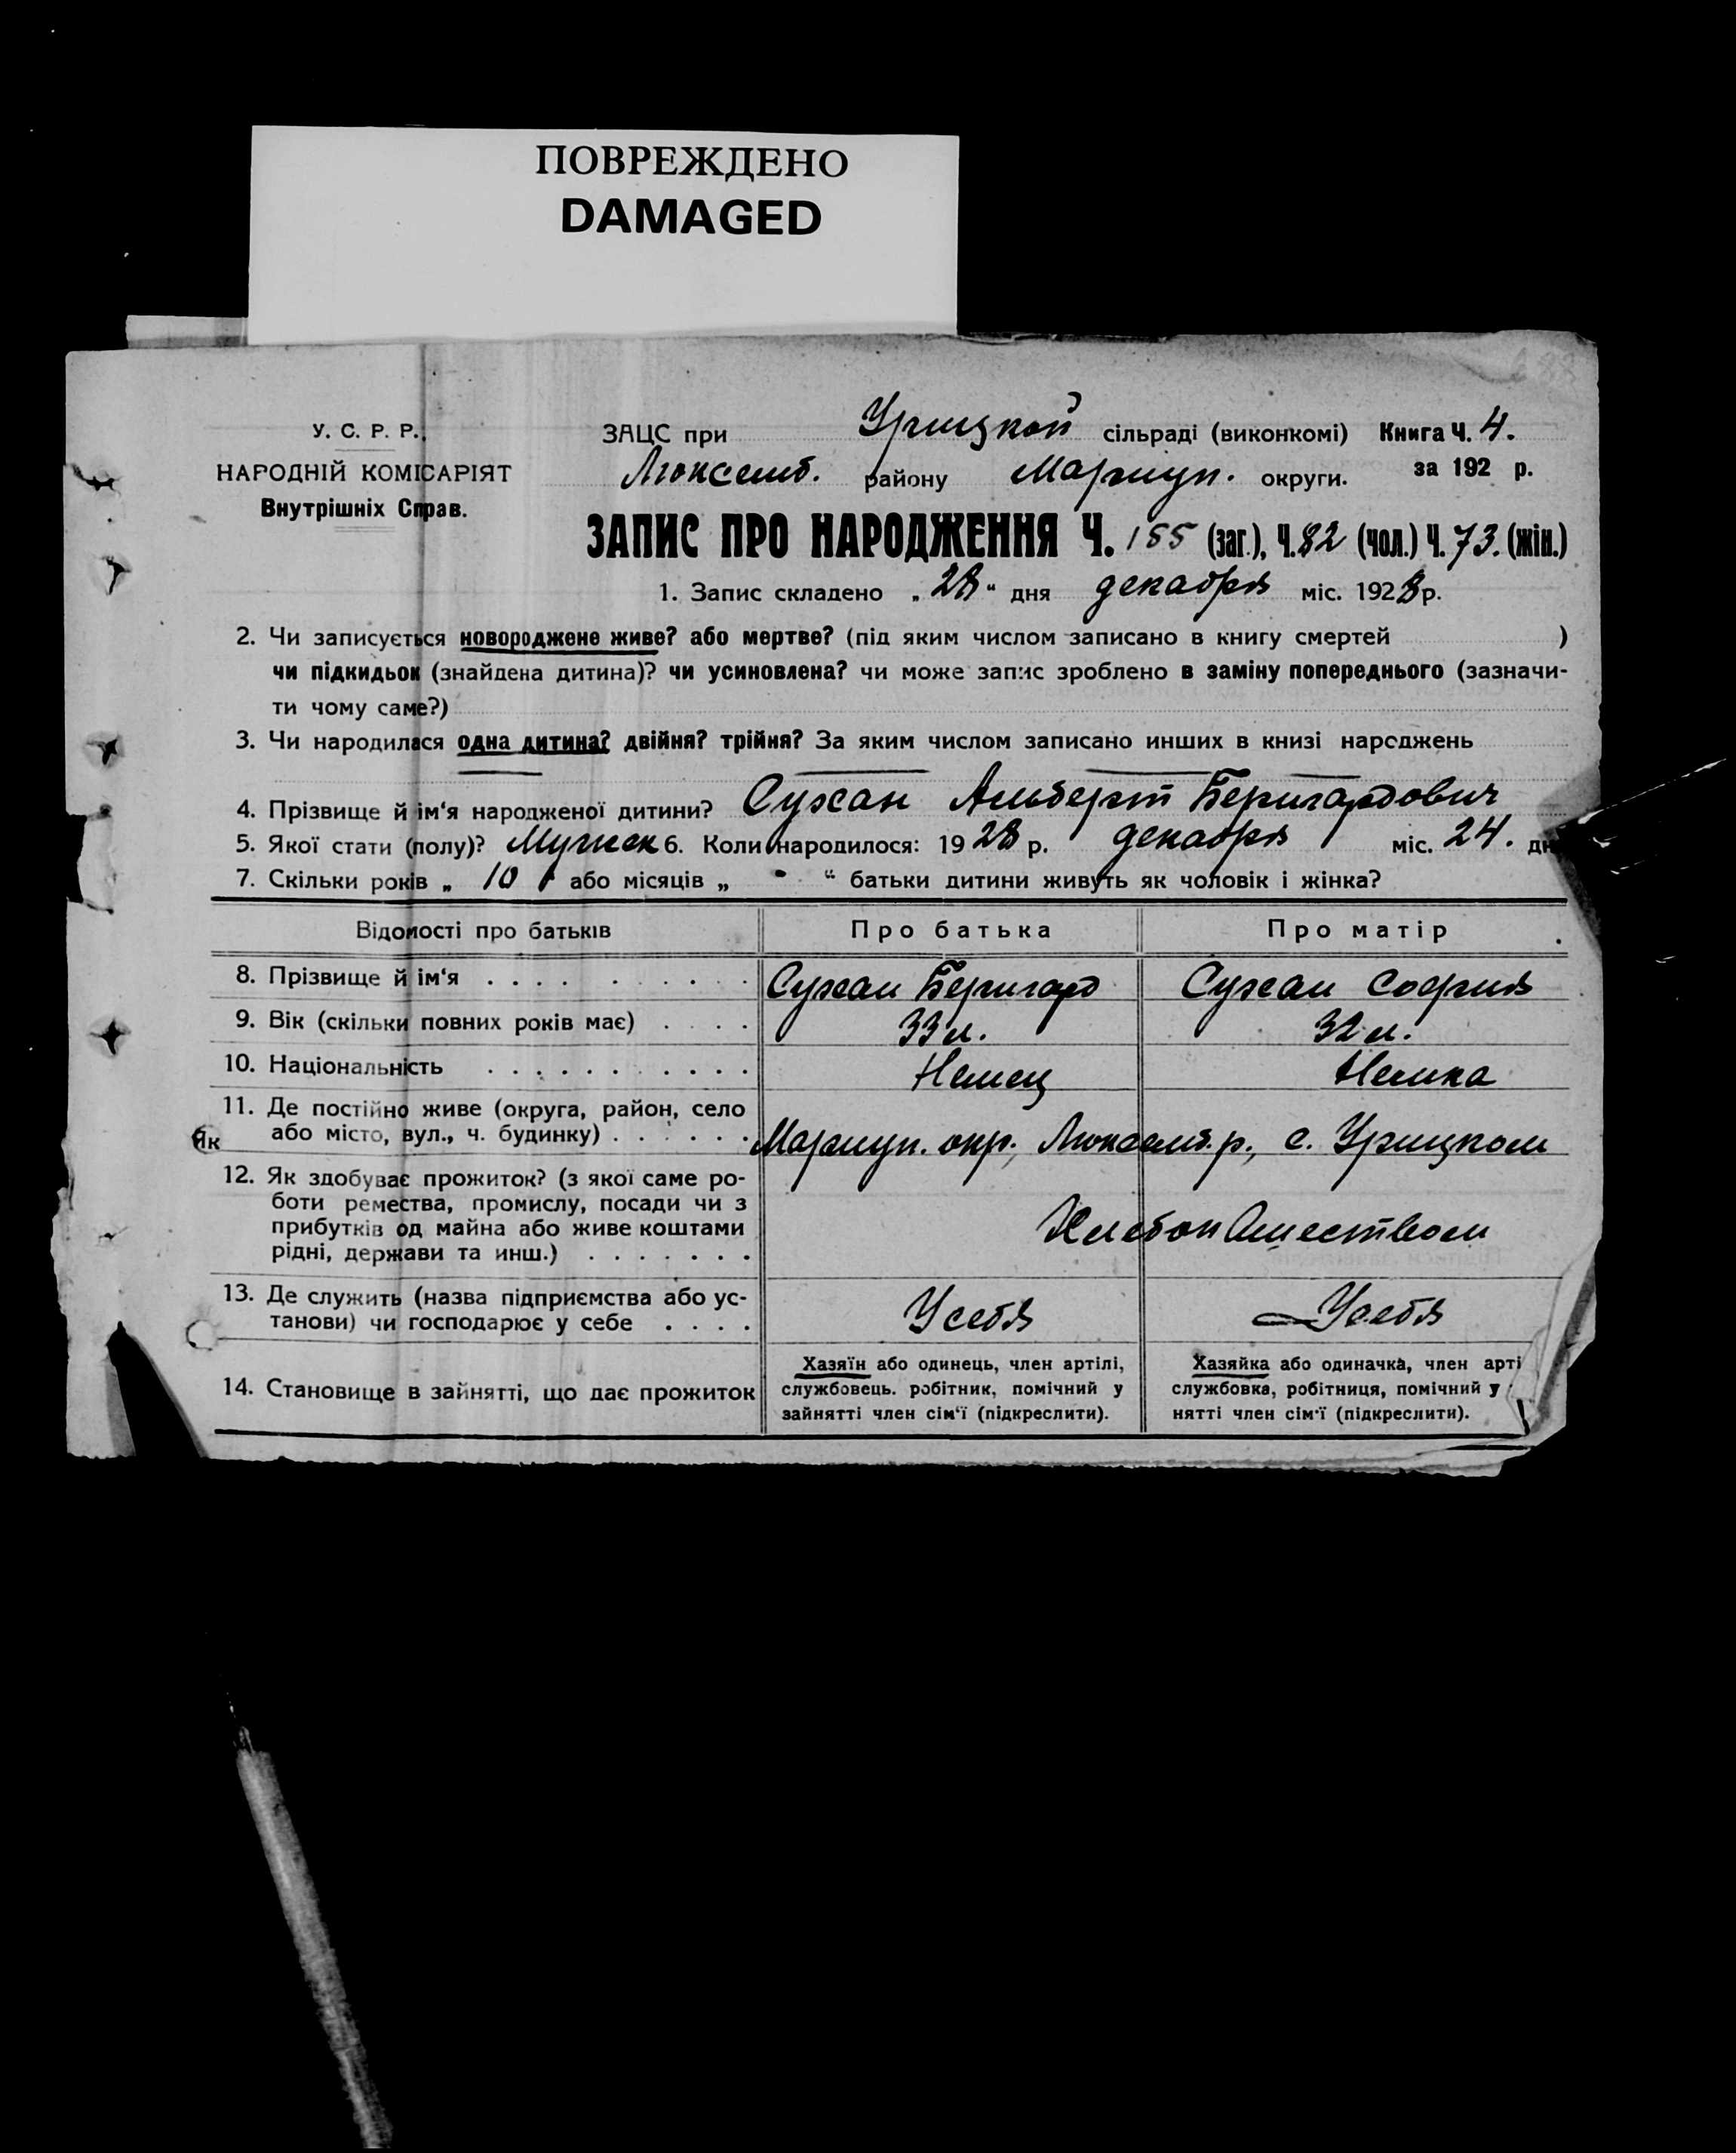 ПОВРЕЖДЕНО
DAMAGED
У. С. Р. Р.
НАРОДНІЙ КОМІСАРІЯТ
Внутрішніх Справ.
ЗАЦС при Урицкой сільраді (виконкомі) Книга Ч. 4.
Люксемб. району Мариуп. округи. за 192 р.
ЗАПИС ПРО НАРОДЖЕННЯ Ч. 155 (заг.), Ч. 82 (чол.) Ч. 73. (жін.)
1. Запис складено „28“ дня декабря міс. 1928 р.
2. Чи записується новороджене живе? або мертве? (під яким числом записано в книгу смертей )
чи підкидьок (знайдена дитина)? чи усиновлена? чи може запис зроблено в заміну попереднього (зазначи-
ти чому саме?)
3. Чи народилася одна дитина? двійня? трійня? За яким числом записано инших в книзі народжень
4. Прізвище й ім‘я народженої дитини? Сужан Альберт Бернгардович
5. Якої стати (полу)? Мужск 6. Коли народилося: 1928 р. декабря міс. 24. дн
7. Скільки років „ 10 “ або місяців „ “ батьки дитини живуть як чоловік і жінка?
Відомості про батьків Про батька Про матір
8. Прізвище й ім‘я . . . . Сужан Бернгард Сужан София
9. Вік (скільки повних років має) . . . . 33 л. 32 л.
10. Національність . . . . Немец Немка
11. Де постійно живе (округа, район, село
або місто, вул., ч. будинку) . . . . . . Мариуп. окр., Люксемб. р., с. Урицком
Як
12. Як здобуває прожиток? (з якої саме ро-
боти ремества, промислу, посади чи з
прибутків од майна або живе коштами
рідні, держави та инш.) . . . . . . .
Хлебопашеством
13. Де служить (назва підприємства або ус-
танови) чи господарює у себе . . . . У себя У себя
14. Становище в зайнятті, що дає прожиток
Хазяїн або одинець, член артілі,
службовець. робітник, помічний у
зайнятті член сім‘ї (підкреслити).
Хазяйка або одиначка, член арті
службовка, робітниця, помічний у
нятті член сім‘ї (підкреслити).